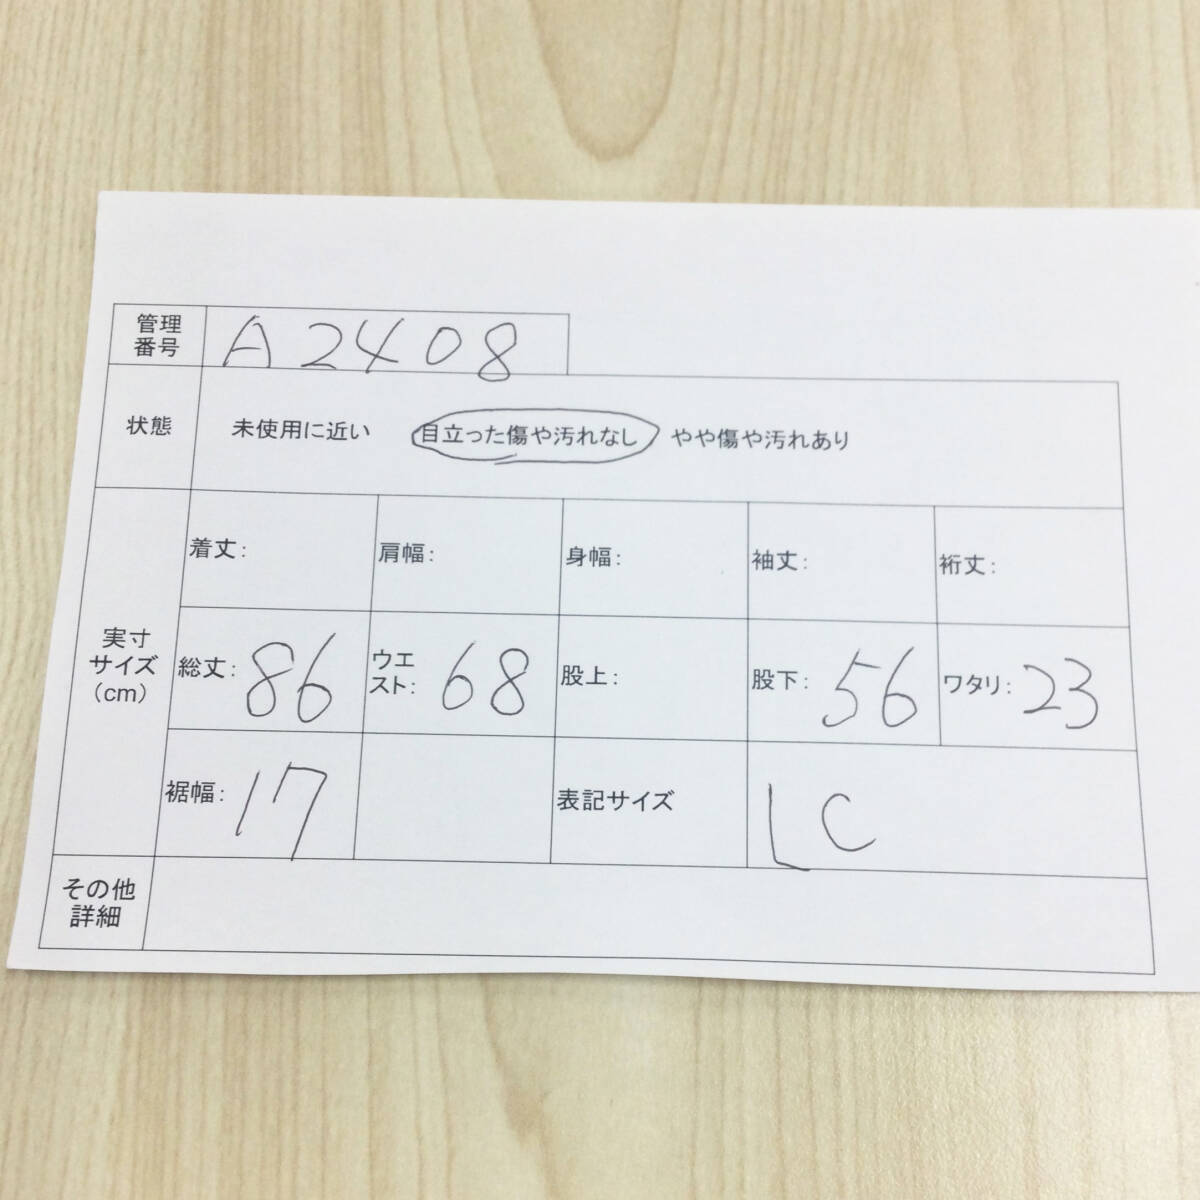 管理
番号
A2408
状態
未使用に近い 目立った傷や汚れなし やや傷や汚れあり
実寸
サイズ
(cm)
着丈: 肩幅: 身幅: 袖丈: 裄丈:
総丈: 86
ウエ
スト: 68
股上:
股下: 56
ワタリ: 23
裾幅: 17
表記サイズ LC
その他
詳細